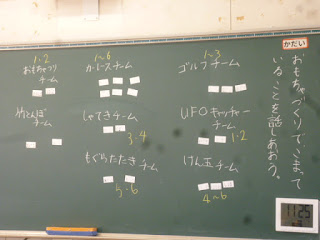 かだい
おもちゃづくりでこまって
いることを話しあおう。
1・2
おもちゃつり
チーム
1～6
カーレースチーム
1～3
ゴルフチーム
けん玉チーム
4～6
しゃてきチーム
3・4
UFOキャッチャー
チーム
1・2
もぐらたたきチーム
5・6
チーム
11:25